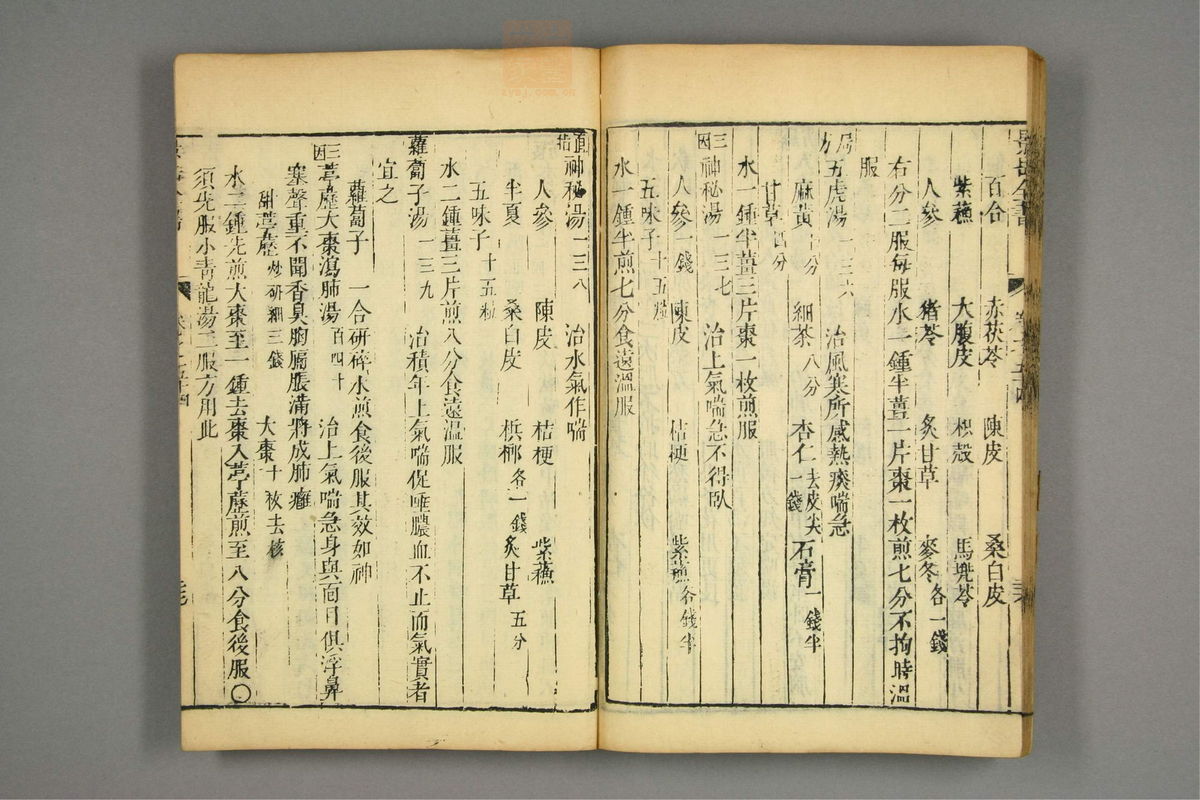 景岳全書
百合 赤茯苓 陳皮 桑白皮
紫蘇 大腹皮 枳殼 馬兜苓
人參 猪苓 炙甘草 麥冬各一錢
右分二服每服水一鍾半薑一片棗一枚煎七分不拘時溫
服
局方五虎湯 一三六 治風寒所感熱痰喘急
麻黃 細茶八分 杏仁去皮尖一錢 石膏一錢半
甘草四分
水一鍾半薑三片棗一枚煎服
三因神秘湯 一三七 治上氣喘急不得臥
人參一錢 陳皮 桔梗 紫蘇各錢半
五味子十五粒
水一鍾半煎七分食遠溫服
直指神秘湯 一三八 治水氣作喘
人參 陳皮 桔梗 紫蘇
半夏 桑白皮 檳榔各一錢 炙甘草五分
五味子十五粒
水二鍾薑三片煎八分食遠溫服
蘿蔔子湯 一三九 治積年上氣喘促唾膿血不止而氣實者
宜之
蘿蔔子一合研碎水煎食後服其效如神
三因葶藶大棗瀉肺湯 百四十 治上氣喘急身與面目俱浮鼻
塞聲重不聞香臭胸膈脹滿將成肺癰
甜葶藶炒研細三錢 大棗十枚去核
水二鍾先煎大棗至一鍾去棗入葶藶煎至八分食後服○
須先服小青龍湯三服方用此